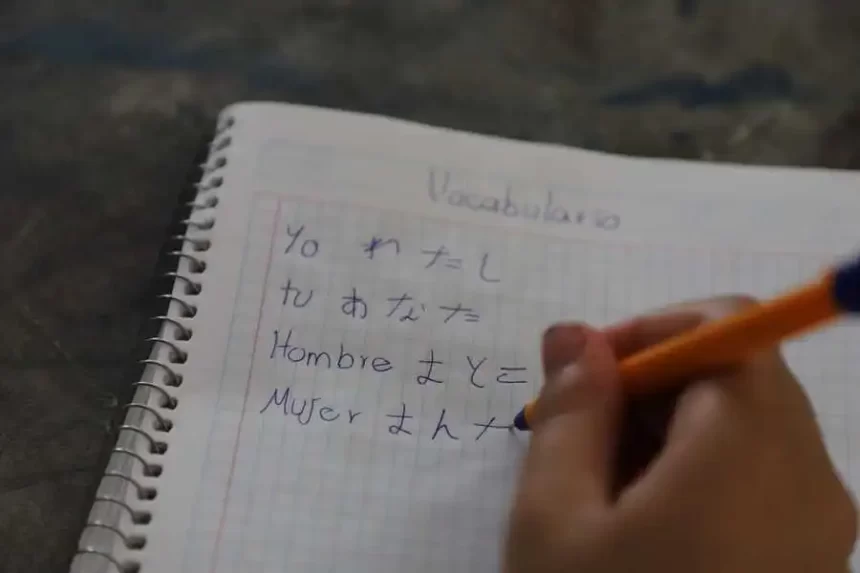 Vocabulario
Yo わたし
tu あなた
Hombre おとこ
Mujer おん